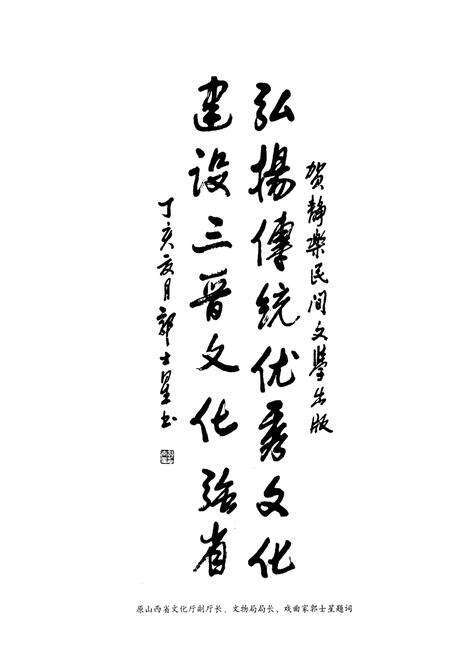 贺静乐民间文学出版
弘揚傳统优秀文化
建设三晋文化强省
丁亥夏月郭士星书
原山西省文化厅副厅长、文物局局长、戏曲家郭士星题词